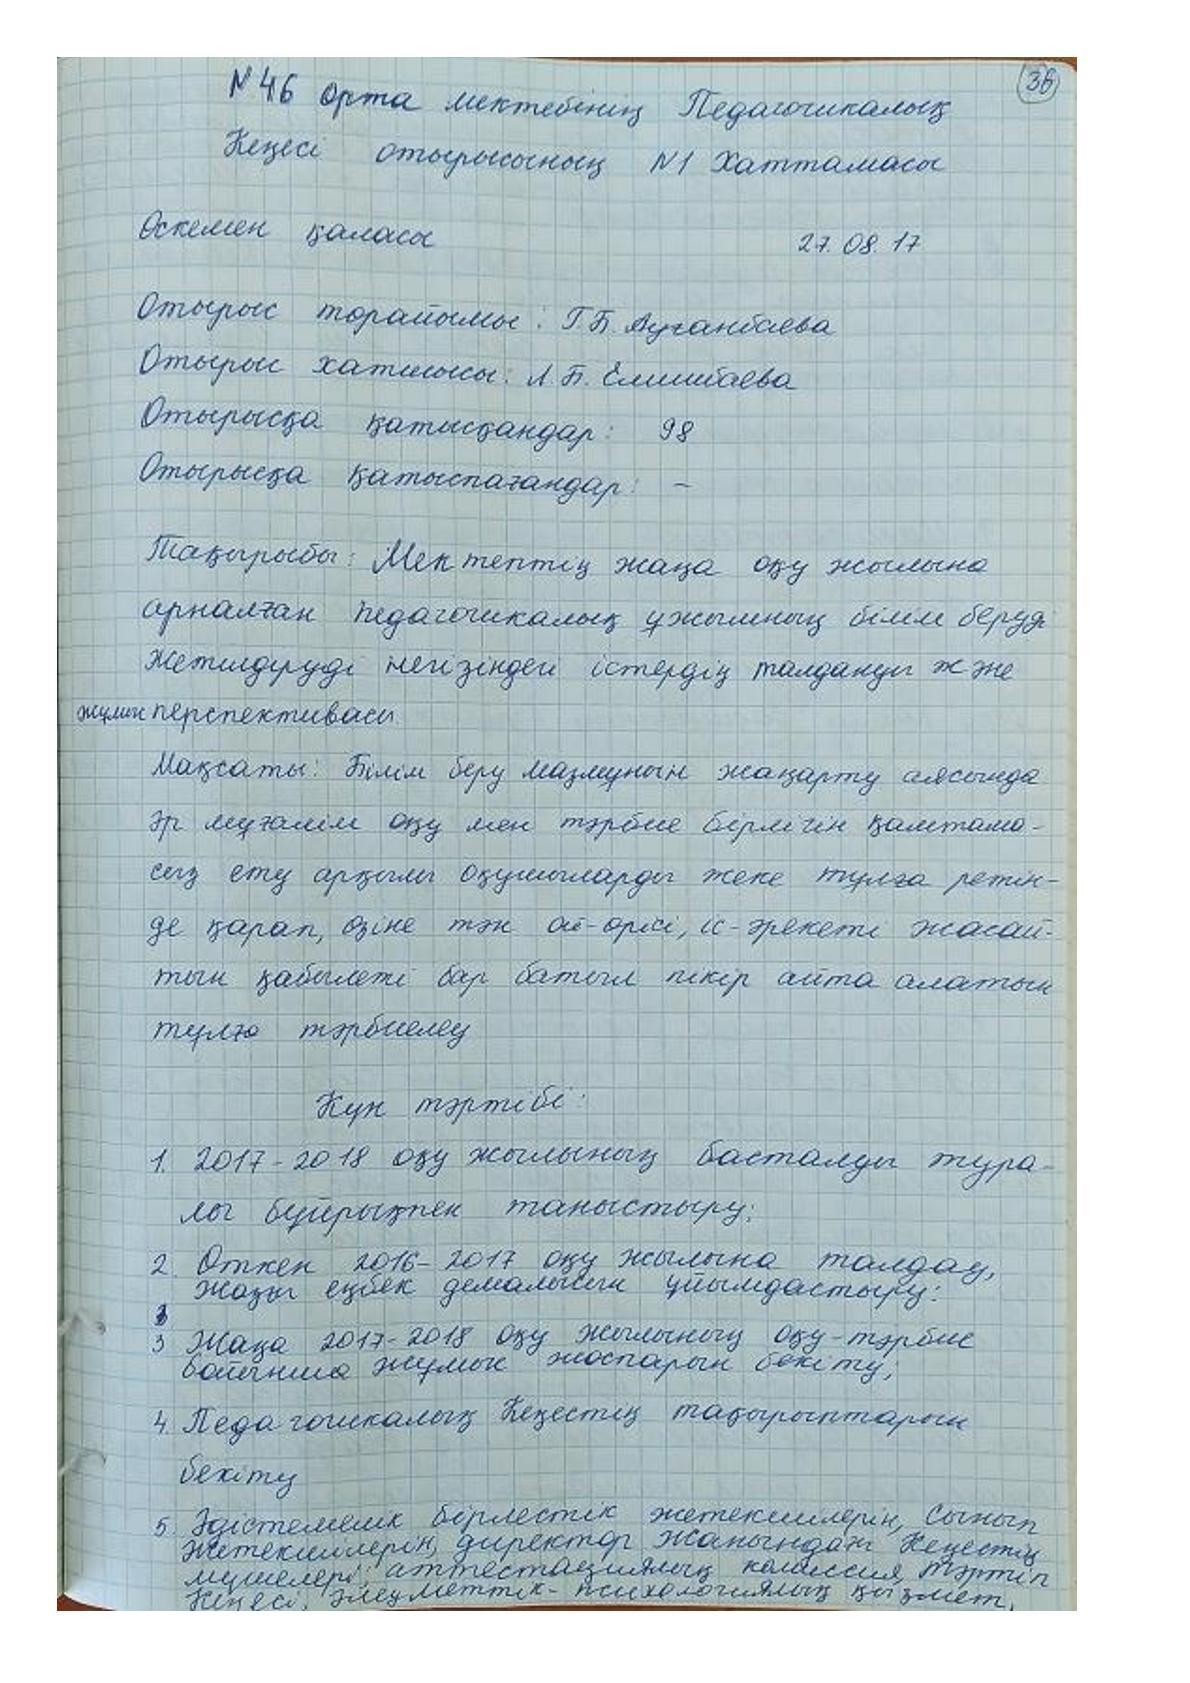 36
№46 орта мектебінің Педагогикалық
Кеңесі отырысының №1 Хаттамасы
Өскемен қаласы 27. 08. 17
Отырыс төрайымы: Г.Б. Ауғанбаева
Отырыс хатшысы: Л.Б. Елшибаева
Отырысқа қатысқандар: 98
Отырысқа қатыспағандар: –
Тақырыбы: Мектептің жаңа оқу жылына
арналған педагогикалық ұжымның білім беруді
жетілдіруді негізіндегі істердің талдануы және
жұмыс перспективасы
Мақсаты: Білім беру мазмұнын жаңарту аясында
әр мұғалім оқу мен тәрбие бірлігін қамтама-
сыз ету арқылы оқушыларды жеке тұлға ретін-
де қарап, өзіне тән ой-өрісі, іс-әрекеті жасай-
тын қабылеті бар батыл пікір айта алатын
тұлға тәрбиелеу
Күн тәртібі:
1. 2017-2018 оқу жылының басталды тура-
лы бұйрықпен таныстыру;
2. Өткен 2016-2017 оқу жылына талдау,
жазғы еңбек демалысын ұйымдастыру:
3 Жаңа 2017-2018 оқу жылының оқу-тәрбие
бойынша жұмыс жоспарын бекіту;
4. Педагогикалық Кеңестің тақырыптарын
бекіту
5. Әдістемелік бірлестік жетекшілерін, Сынып
жетекшілерін, директор жанындағы Кеңестің
мүшелері, аттестациялық комиссия, Тәртіп
Кеңесі, әлеуметтік-психологиялық қызмет,